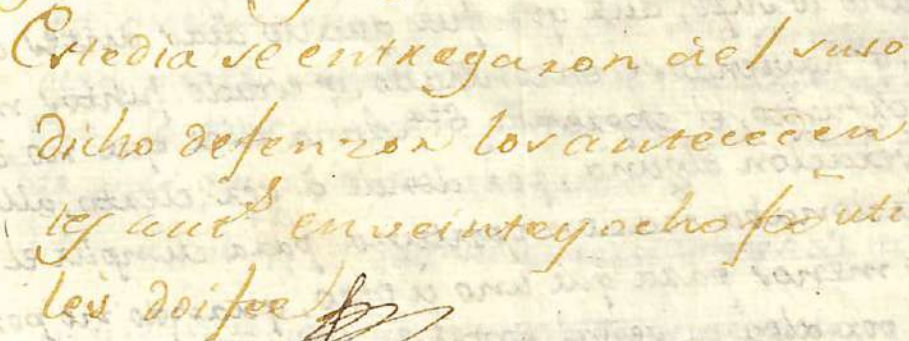 Estedia se entregaron àel suso
dicho defenzor los anteceden
tes aut.s en veinteyocho fox.s uti
les doifee